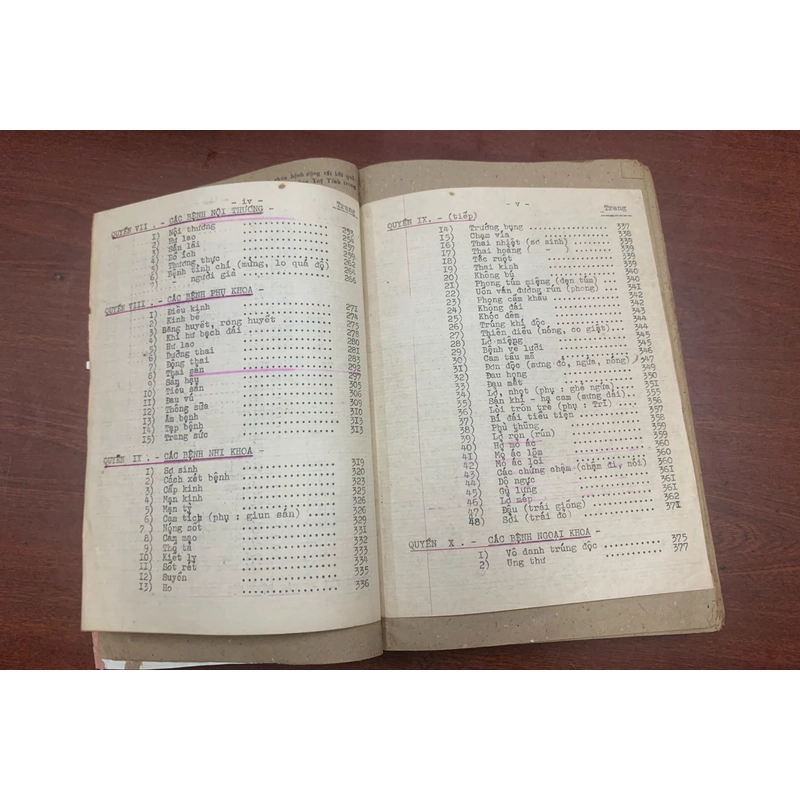 - iv -
Trang
QUYỂN VII . - CÁC BỆNH NỘI THƯƠNG -
1) Nội thương ........ 253
2) Hư lao ........ 254
3) Sán lãi ........ 256
4) Sổ ích ........ 259
5) Thương thực ........ 262
6) Bệnh tình chí (mừng, lo quá độ) ........ 266
7) - người già ........ 266
QUYỂN VIII . - CÁC BỆNH PHỤ KHOA -
1) Điều kinh ........ 271
2) Kinh bế ........ 274
3) Băng huyết, rong huyết ........ 275
4) Khí hư bạch đái ........ 278
5) Hư lao ........ 280
6) Dưỡng thai ........ 281
7) Động thai ........ 283
8) Thai sản ........ 292
9) Sản hậu ........ 297
10) Tiểu sản ........ 305
11) Đau vú ........ 306
12) Thông sữa ........ 309
13) Âm bệnh ........ 310
14) Tạp bệnh ........ 313
15) Trang sức ........ 313
QUYỂN IX . - CÁC BỆNH NHI KHOA -
1) Sơ sinh ........ 319
2) Cách xét bệnh ........ 320
3) Cấp kinh ........ 323
4) Mạn kinh ........ 325
5) Mạn tỳ ........ 325
6) Cam tích (phụ : giun sán) ........ 326
7) Nóng sốt ........ 329
8) Cảm mạo ........ 331
9) Thổ tả ........ 332
10) Kiết lỵ ........ 333
11) Sốt rét ........ 334
12) Suyễn ........ 335
13) Ho ........ 336
- v -
Trang
QUYỂN IX. - (tiếp)
14) Trướng bụng ........ 337
15) Chạm vía ........ 338
16) Thai nhiệt (sơ sinh) ........ 339
17) Thai hoàng ( - ) ........ 339
18) Tắc ruột ........ 339
19) Thai kinh ........ 339
20) Không bú ........ 340
21) Phong túm miệng (đẹn túm) ........ 340
22) Uốn ván đường rún (phong) ........ 341
23) Phong cấm khẩu ........ 342
24) Không đái ........ 342
25) Khóc đêm ........ 343
26) Trúng khí độc ........ 344
27) Thiên điếu (nóng, co giật) ........ 344
28) Lở miệng ........ 345
29) Bệnh về lưỡi ........ 345
30) Cam tẩu mã ........ 346
31) Đơn độc (sưng đỏ, ngứa, nóng) ........ 347
32) Đau họng ........ 349
33) Đau mắt ........ 350
34) Lở, nhọt (phụ : ghẻ ngứa) ........ 351
35) Sán khí - hạ cam (sưng dái) ........ 355
36) Lòi tròn trê (phụ : Trĩ) ........ 356
37) Bí đái tiểu tiện ........ 357
38) Phù thũng ........ 358
39) Lở rọn (rún) ........ 359
40) Hở mỏ ác ........ 360
41) Mỏ ác lõm ........ 360
42) Mỏ ác lồi ........ 360
43) Các chứng chậm (chậm đi, nói) ........ 360
44) Dô ngực ........ 361
45) Gù lưng ........ 361
46) Lở mép ........ 361
47) Đậu (trái giống) ........ 362
48) Sởi (trái đỏ) ........ 371
QUYỂN X . - CÁC BỆNH NGOẠI KHOA -
1) Vô danh trúng độc ........ 375
2) Ung thư ........ 377